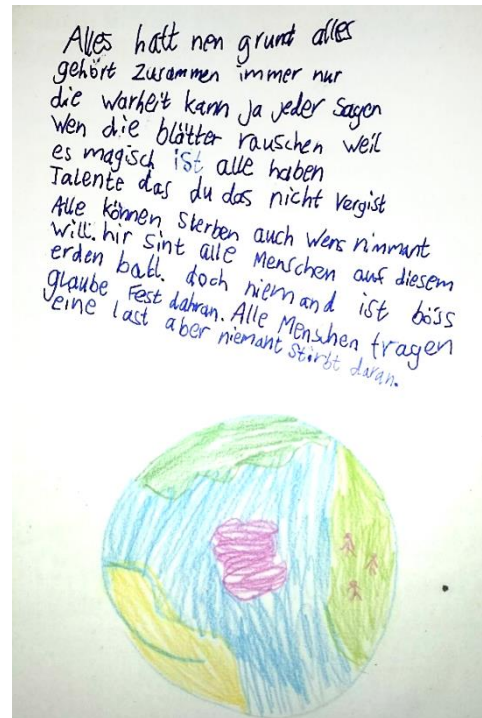 Alles hatt nen grund alles
gehört zusammen immer nur
die warheit kann ja jeder sagen
wen die blätter rauschen weil
es magisch ist alle haben
Talente das du das nicht vergist
Alle können sterben auch wens nimmant
will. hir sint alle Menschen auf diesem
erden ball. doch niemand ist böss
glaube fest dahran. Alle Menschen tragen
eine last aber niemant stirbt daran.